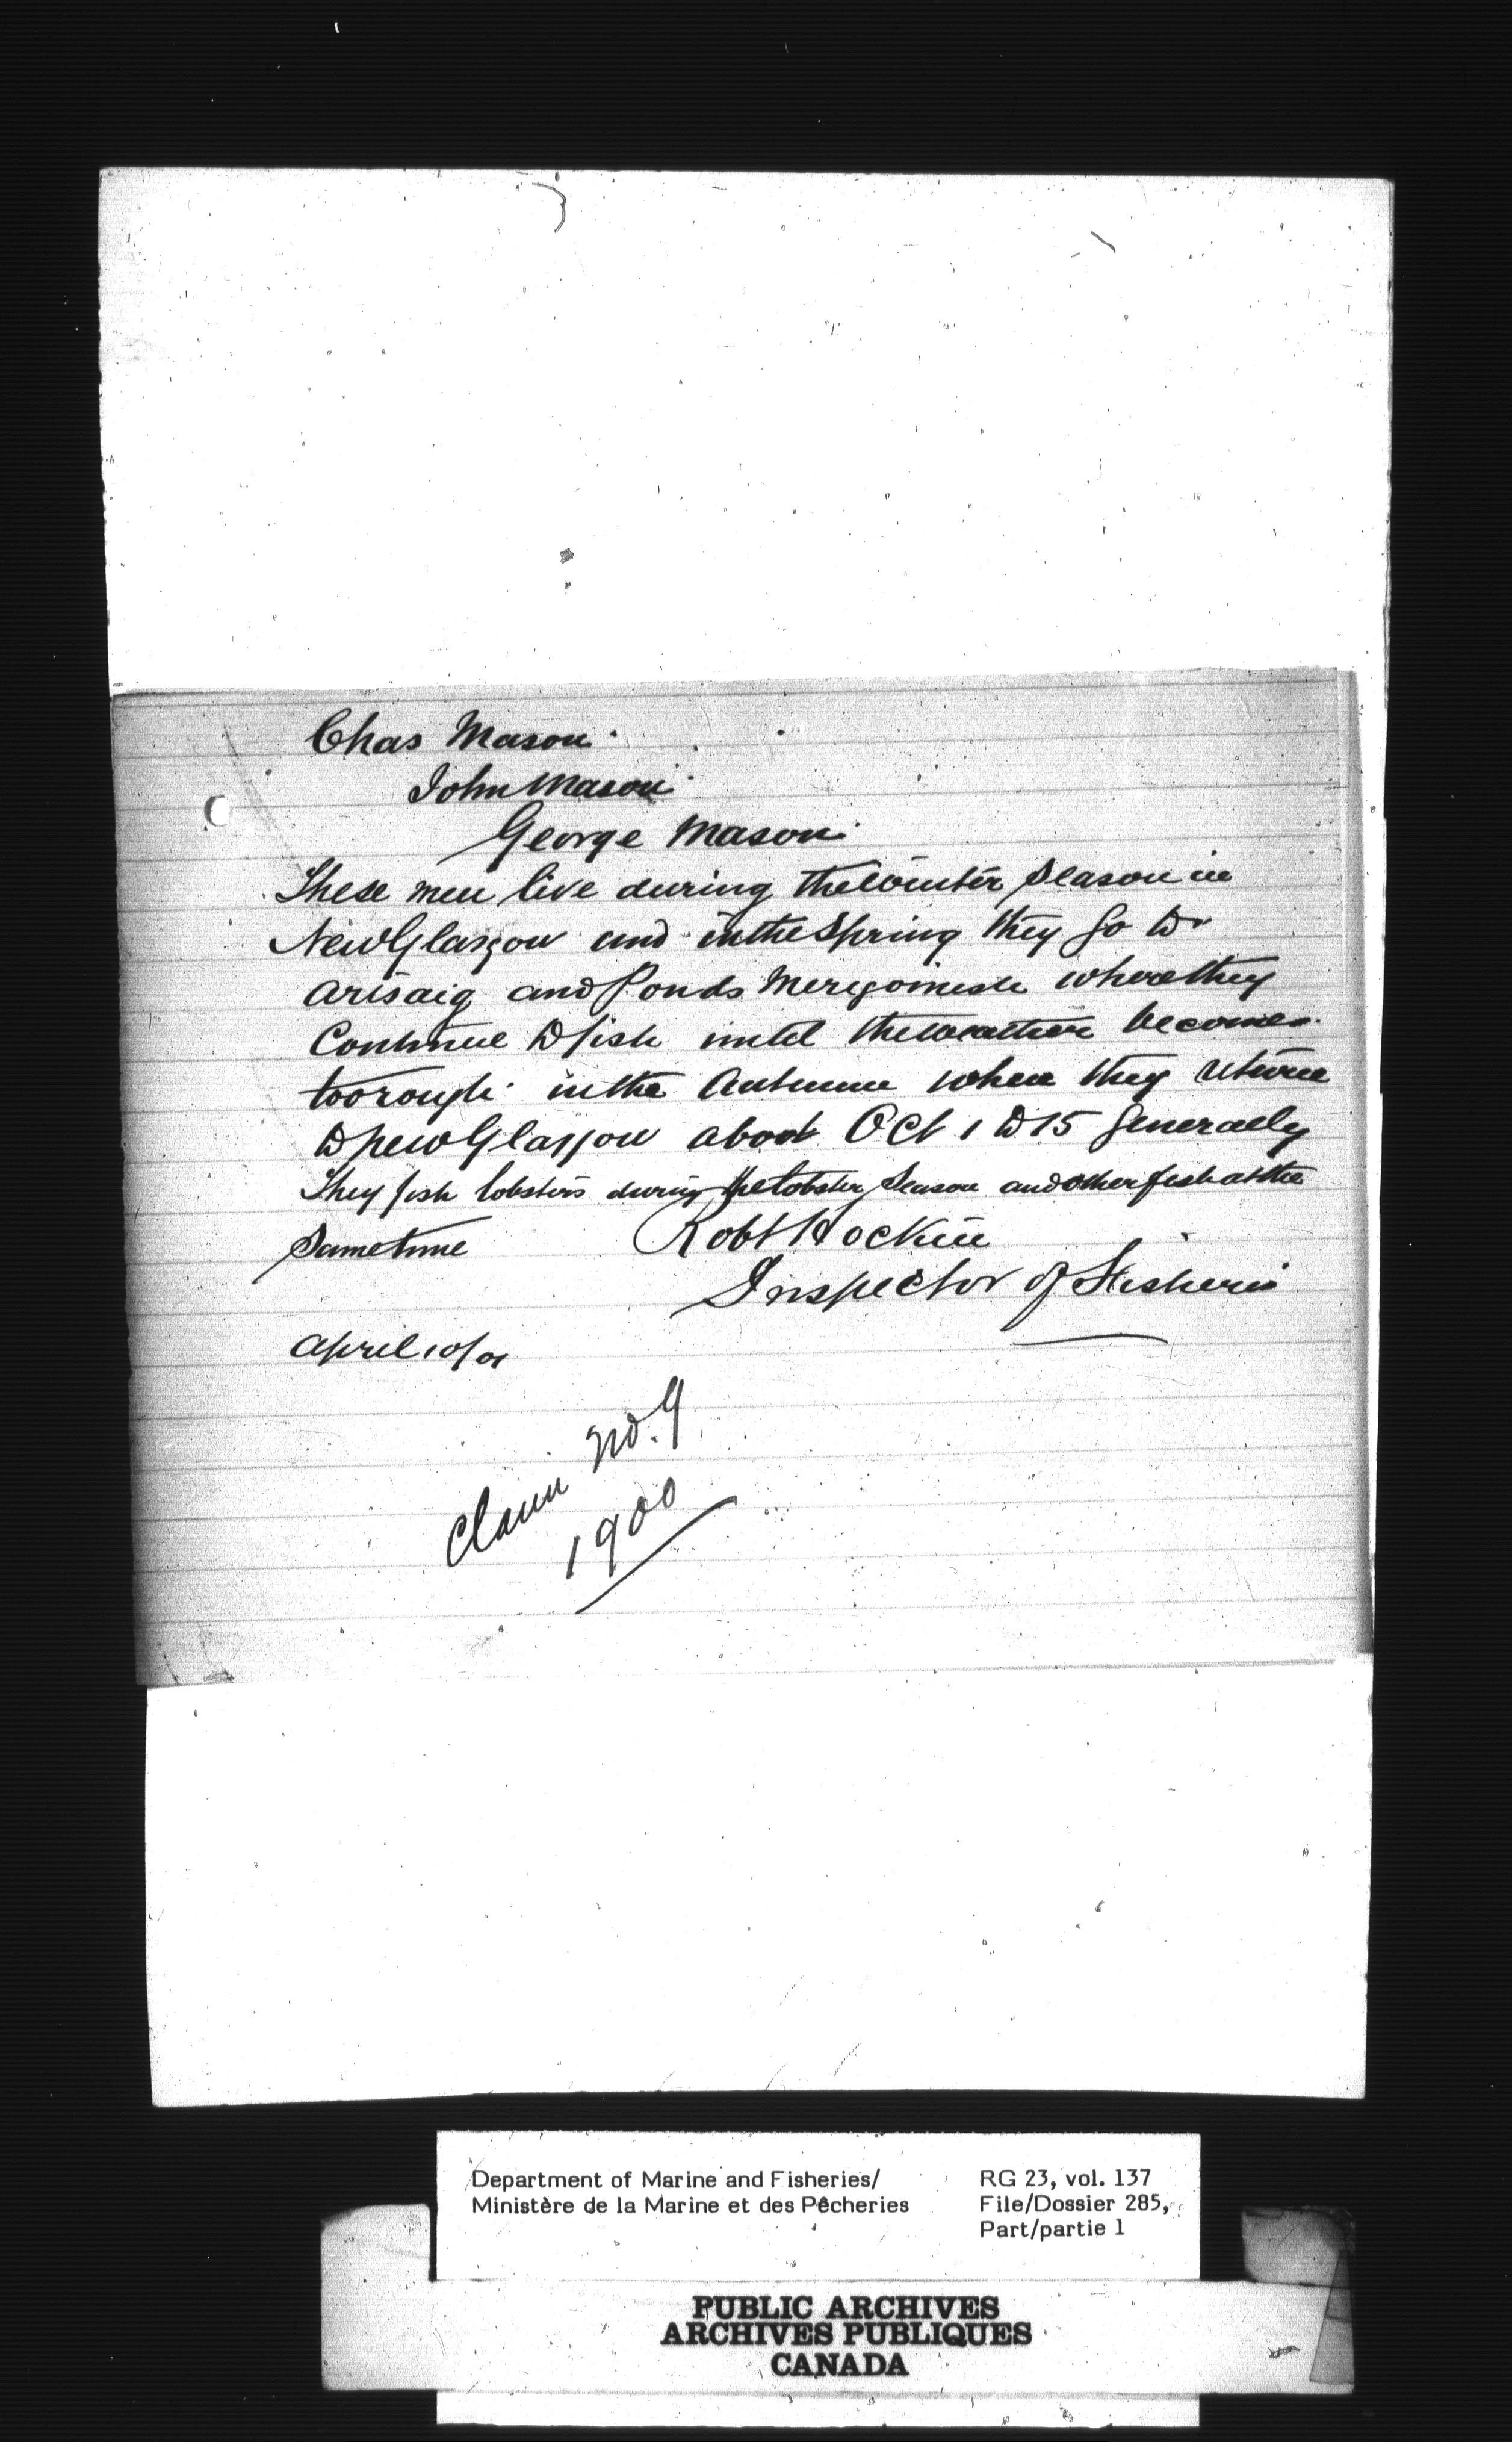 Chas Mason
John Mason
George Mason
These men live during the winter season in
New Glasgow and in the Spring they go to
Arisaig and Ponds Merigomish where they
Continue to fish until the weather becomes
too rough in the Autumn when they return
to New Glasgow about Oct 1 to 15 generally
They fish lobsters during the lobster Season and other fish at the
Same time
Robt Hockin
Inspector of Fisheries
April 10/01
Claim No. 9
1900
Department of Marine and Fisheries/
Ministère de la Marine et des Pêcheries
RG 23, vol. 137
File/Dossier 285,
Part/partie 1
PUBLIC ARCHIVES
ARCHIVES PUBLIQUES
CANADA